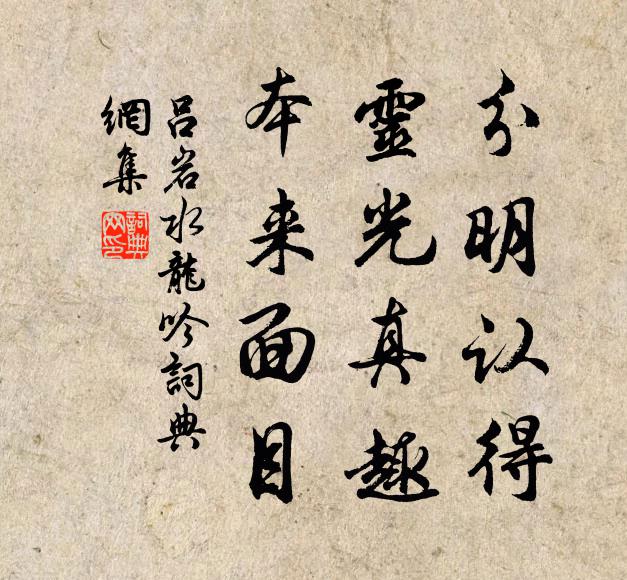 分明认得
靈光真趣
本来面目
呂岩水龍吟詞典
網集
詞典
网印